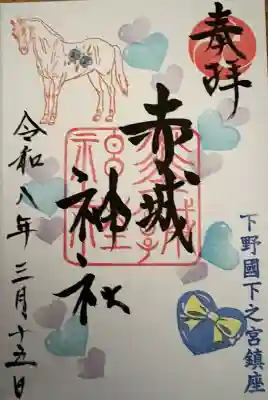 奉拝
赤城
神社
下野國下之宮鎮座
令和八年三月十五日